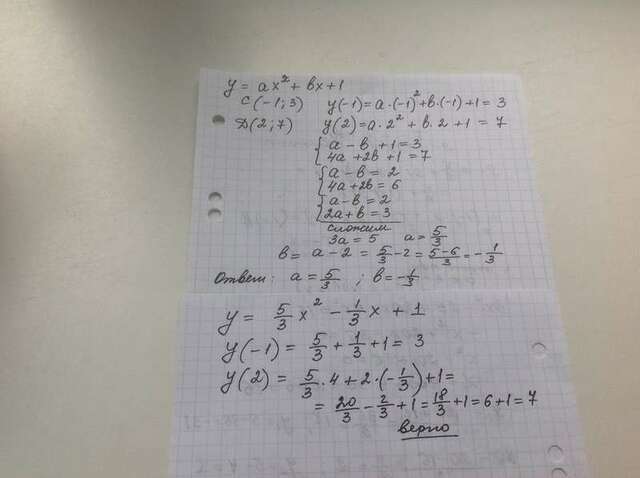 y = ax² + bx + 1
C(-1; 3) y(-1) = a·(-1)² + b·(-1) + 1 = 3
D(2; 7) y(2) = a·2² + b·2 + 1 = 7
{ a - b + 1 = 3
4a + 2b + 1 = 7
{ a - b = 2
4a + 2b = 6
{ a - b = 2
2a + b = 3
сложим
3a = 5 a = 5/3
b = a - 2 = 5/3 - 2 = (5-6)/3 = -1/3
Ответ: a = 5/3 ; b = -1/3
y = 5/3 x² - 1/3 x + 1
y(-1) = 5/3 + 1/3 + 1 = 3
y(2) = 5/3 · 4 + 2·(-1/3) + 1 =
= 20/3 - 2/3 + 1 = 18/3 + 1 = 6 + 1 = 7
верно